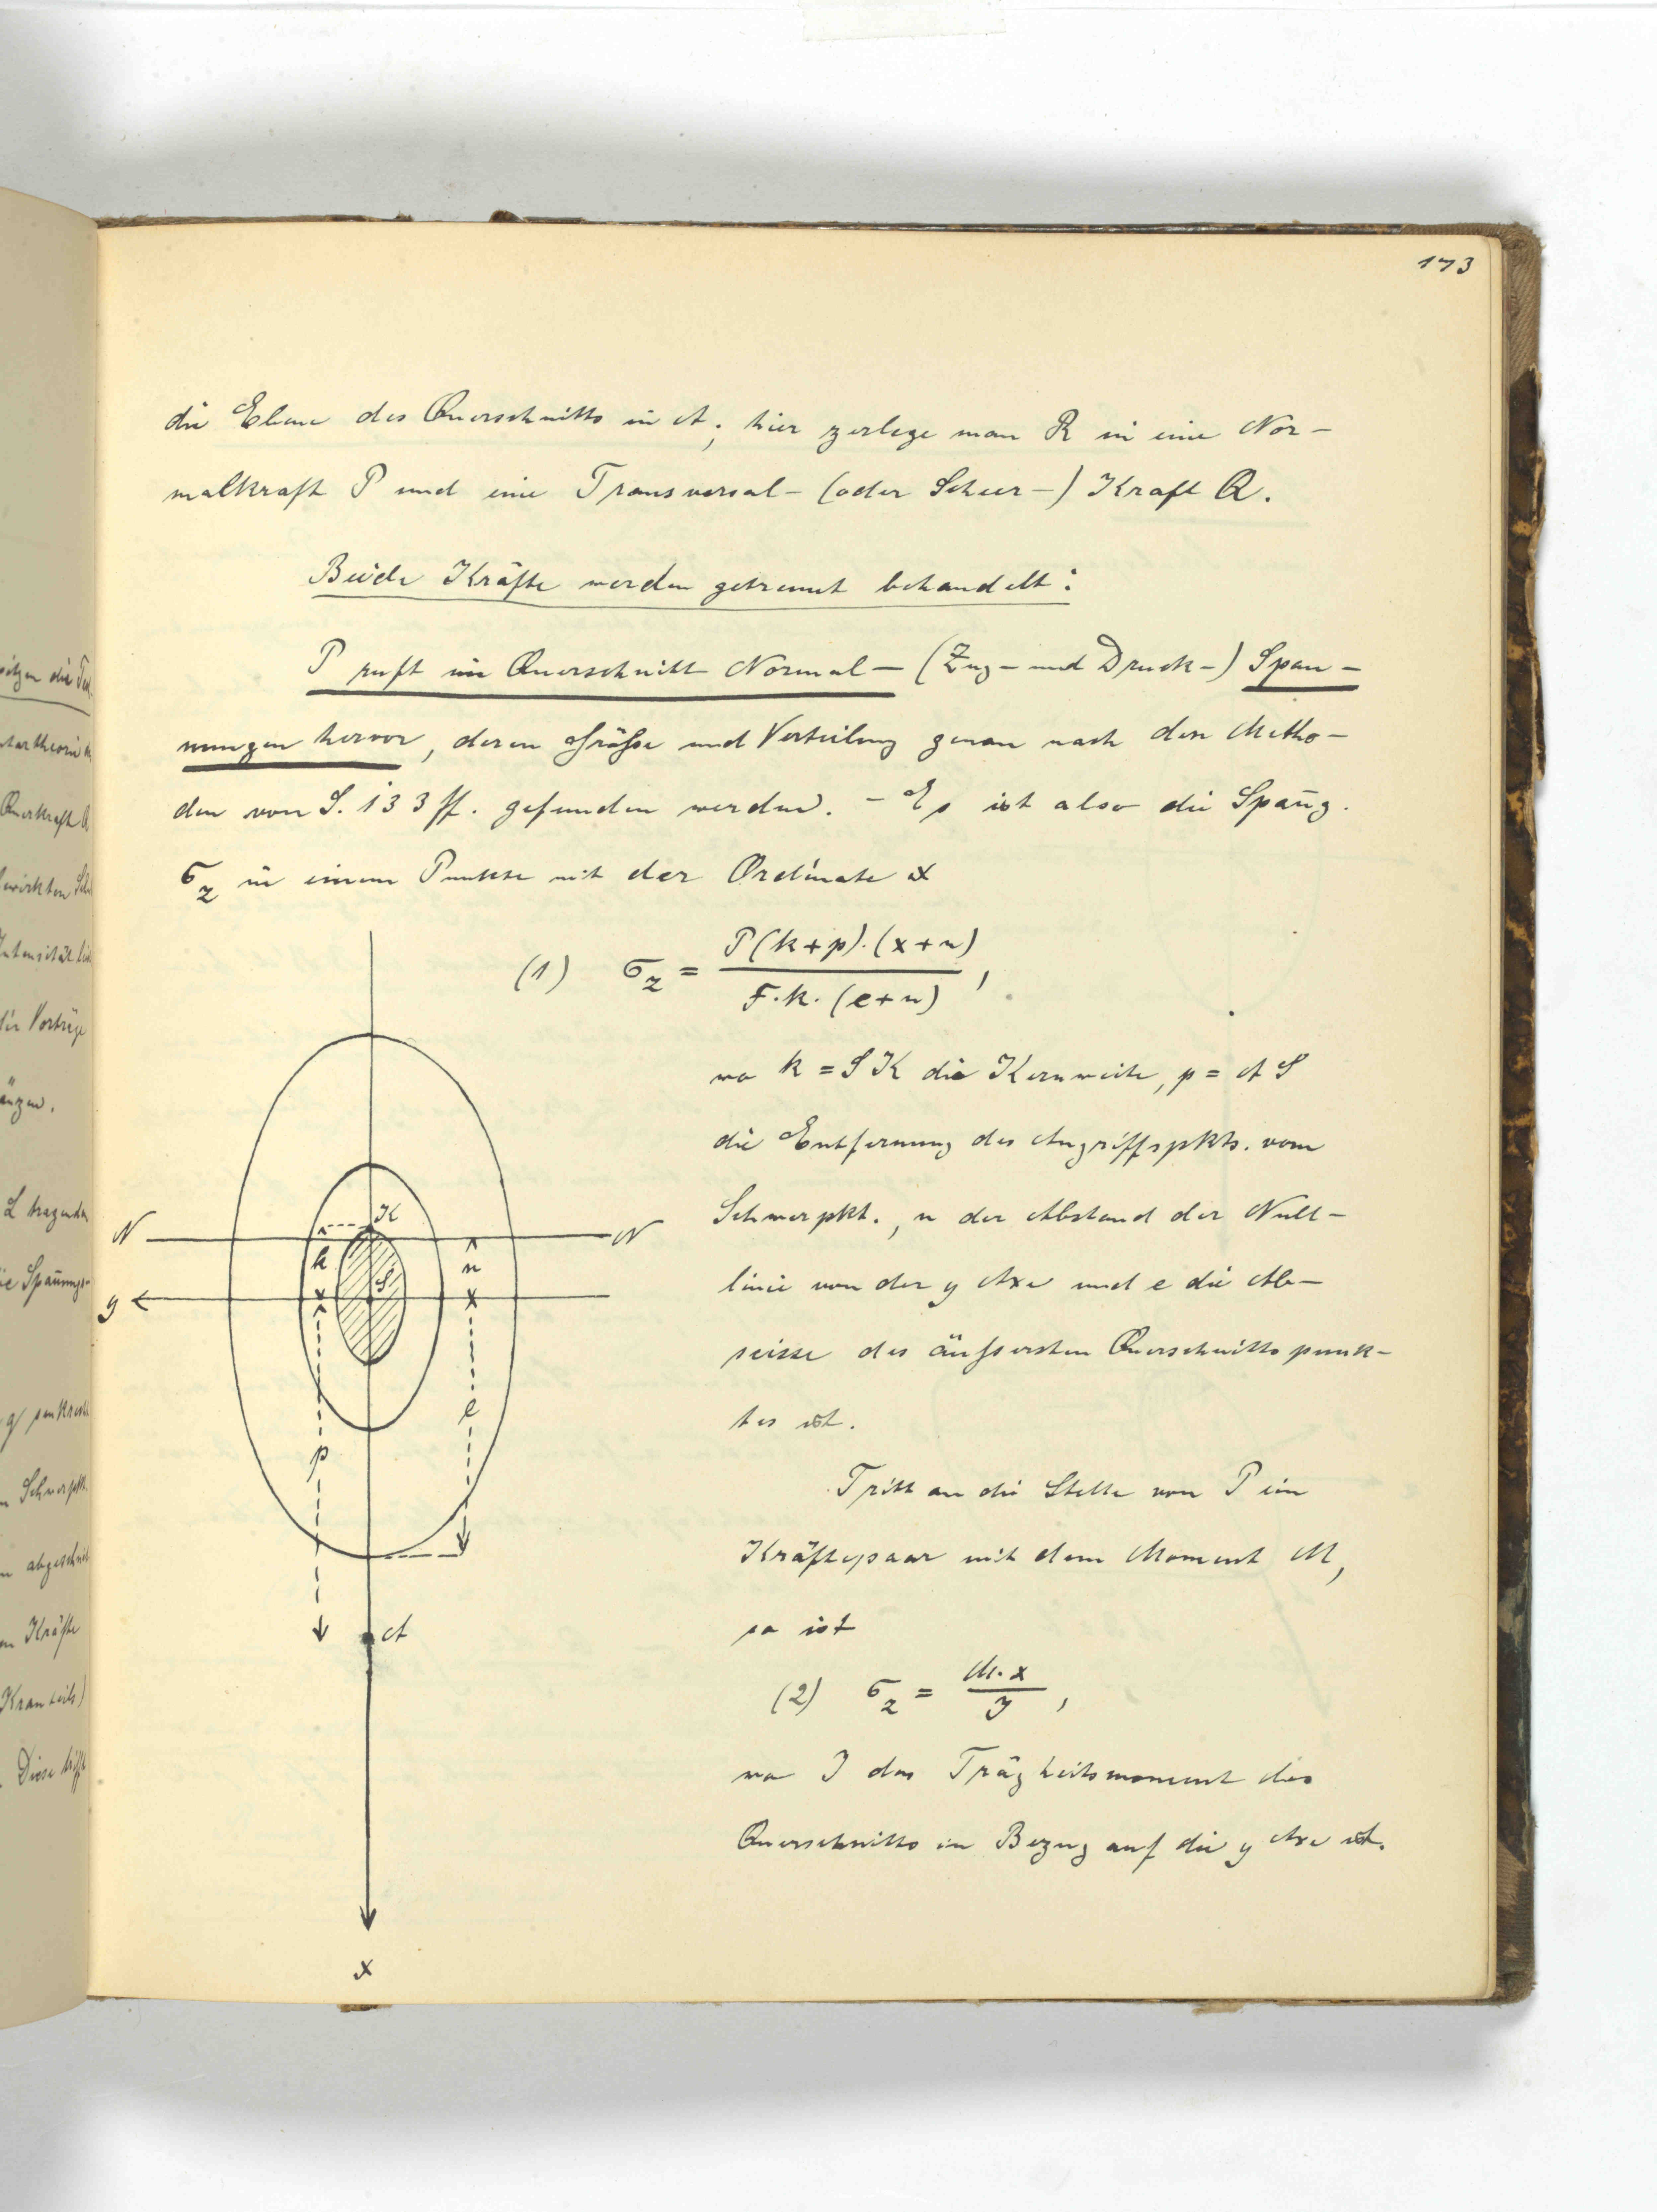 173
die Ebene des Querschnitts in A; hier zerlege man R in eine Nor-
malkraft P und eine Transversal- (oder Scheer-) Kraft Q.
Beide Kräfte werden getrennt behandelt:
P ruft im Querschnitt Normal- (Zug- und Druck-) Span-
nungen hervor, deren Größe und Verteilung genau nach den Metho-
den von S. 133 ff. gefunden werden. - Es ist also die Span̄g.
σz in einem Punkte mit der Ordinate x
(1) σz = P(k+p).(x+n) / F.k.(e+n),
wo k = SK die Kernweite, p = AS
die Entfernung des Angriffspkts. vom
Schwerpkt., n der Abstand der Null-
linie von der y Axe und e die Ab-
scisse des äußersten Querschnittspunk-
tes ist.
Tritt an die Stelle von P ein
Kräftepaar mit dem Moment M,
so ist
(2) σz = M.x / J,
wo J das Trägheitsmoment des
Querschnitts in Bezug auf die y Axe ist.
K
N
N
k
n
S
y
e
p
A
x
Querkraft Q
Vorträge
L tragenden
Schwerpkt.
Kräfte
Diese trifft